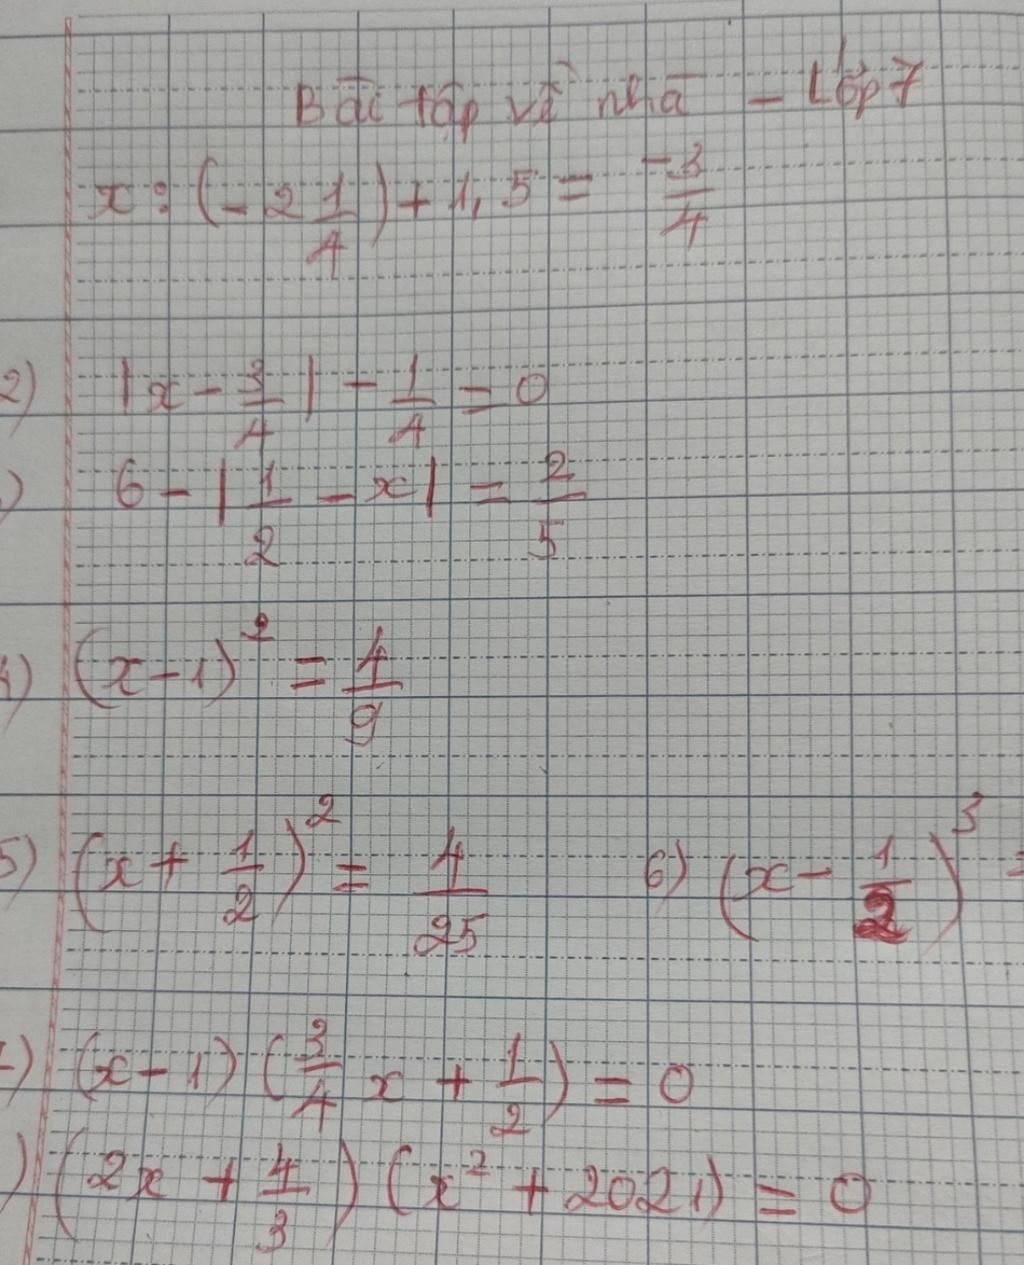 Bài tập về nhà - Lớp 7
x : (-2 1/4) + 1,5 = -3/4
2) |x - 3/4| - 1/4 = 0
) 6 - |1/2 - x| = 2/5
4) (x-1)² = 4/9
5) (x + 1/2)² = 4/25 6) (x - 1/2)³ =
) (x-1) (3/4 x + 1/2) = 0
) (2x + 4/3) (x² + 2021) = 0